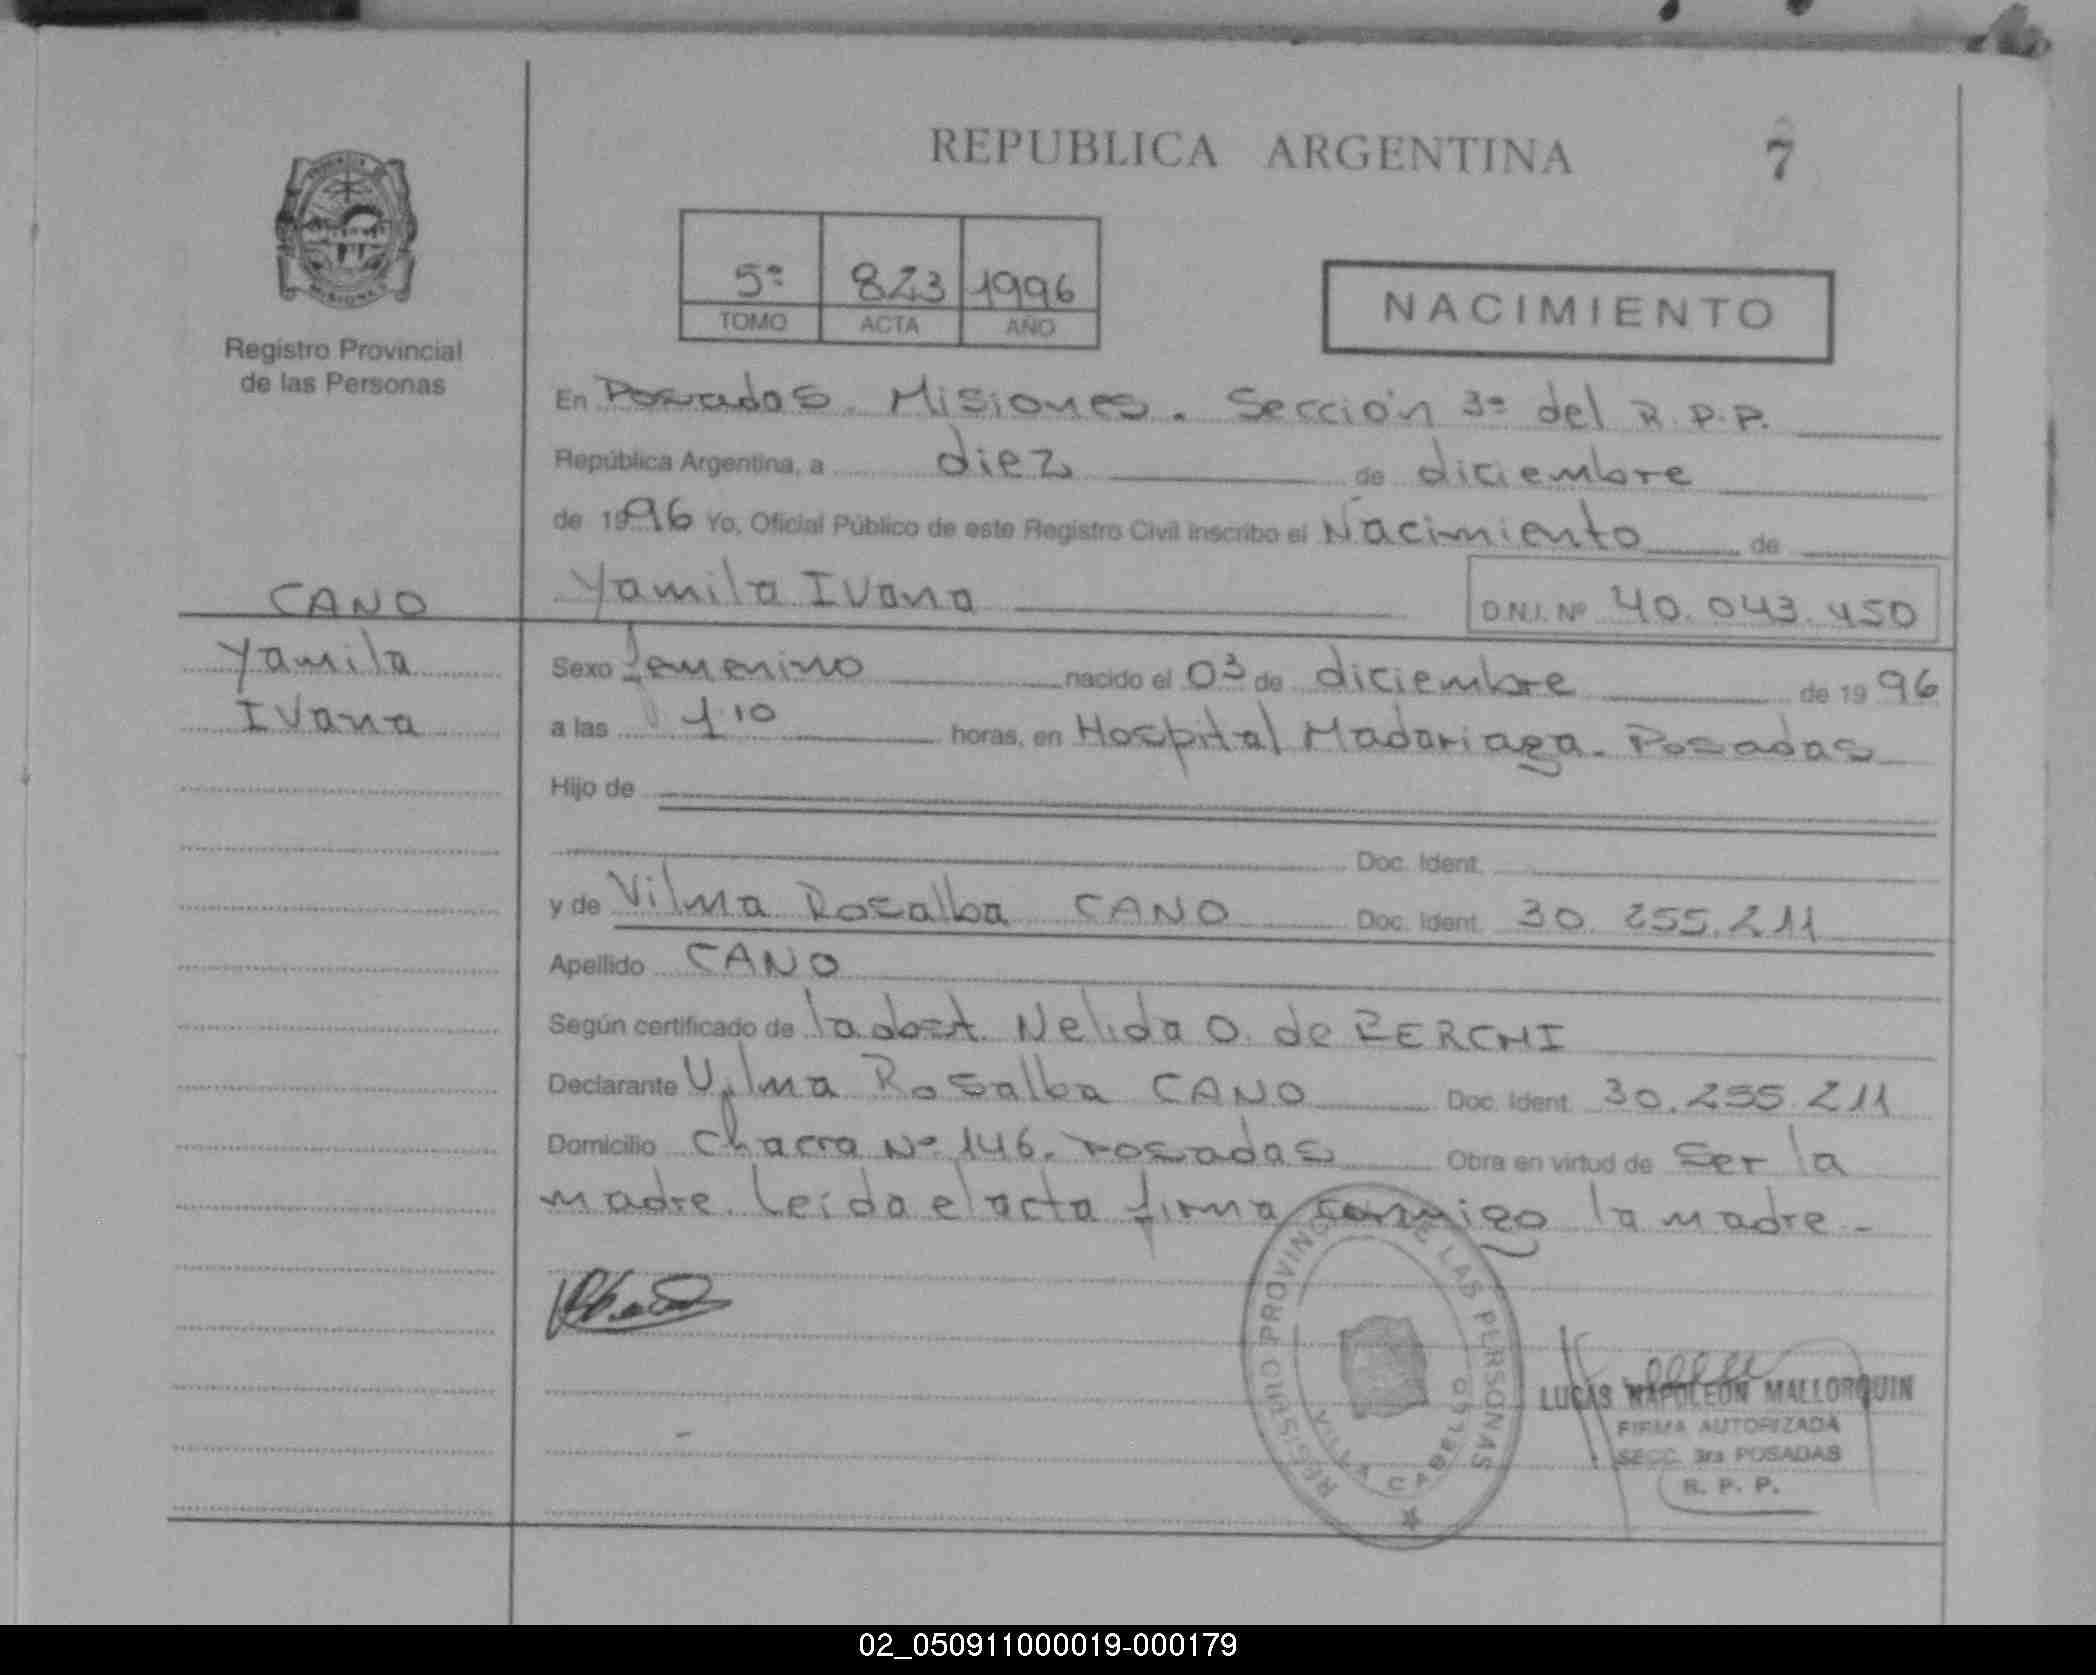 REPUBLICA ARGENTINA
7
5º 823 1996
TOMO ACTA AÑO
NACIMIENTO
MISIONES
Registro Provincial
de las Personas
En Posadas. Misiones. Sección 3º del R.P.P.
República Argentina, a diez de diciembre
de 1996 Yo, Oficial Público de este Registro Civil inscribo el Nacimiento de
CANO
Yamila Ivana D.N.I. Nº 40.043.450
Yamila
Ivana
Sexo femenino nacido el 03 de diciembre de 1996
a las 1.10 horas, en Hospital Madariaga. Posadas
Hijo de
Doc. Ident.
y de Vilma Rosalba CANO Doc. Ident. 30.255.211
Apellido CANO
Según certificado de la obst. Nelida O. de ZERCHI
Declarante Vilma Rosalba CANO Doc. Ident. 30.255.211
Domicilio Chacra Nº 146. Posadas Obra en virtud de Ser la
madre. Leída el acta firma conmigo la madre.-
REGISTRO PROVINCIAL DE LAS PERSONAS
VILLA CABELLO
LUCAS NAPOLEON MALLORQUIN
FIRMA AUTORIZADA
SECC. 3ra POSADAS
R. P. P.
02_050911000019-000179